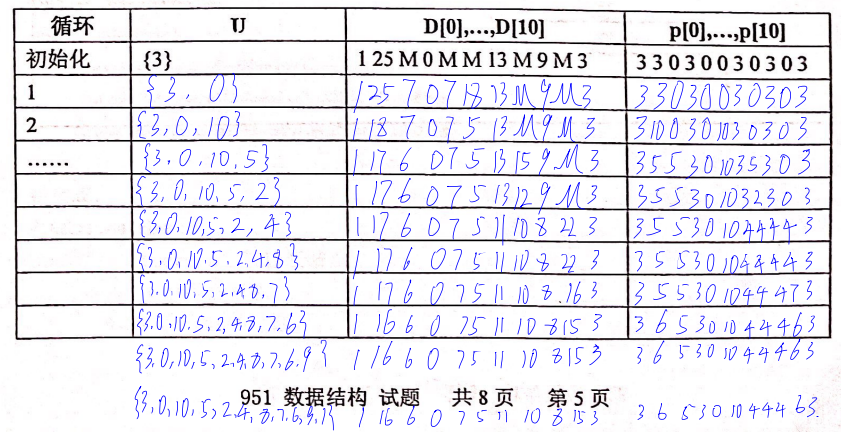 循环 U D[0],…,D[10] p[0],…,p[10]
初始化 {3} 1 25 M 0 M M 13 M 9 M 3 3 3 0 3 0 0 3 0 3 0 3
1 {3, 0} 1 25 7 0 7 18 13 M 9 M 3 3 3 0 3 0 0 3 0 3 0 3
2 {3,0,10} 1 18 7 0 7 5 13 M 9 M 3 3 10 0 3 0 10 3 0 3 0 3
…… {3.0.10.5} 1 17 6 0 7 5 13 15 9 M 3 3 5 5 3 0 10 3 5 3 0 3
{3,0,10,5,2} 1 17 6 0 7 5 13 12 9 M 3 3 5 5 3 0 10 3 2 3 0 3
{3,0,10,5,2,4} 1 17 6 0 7 5 11 10 8 22 3 3 5 5 3 0 10 4 4 4 4 3
{3.0,10.5.2.4,8} 1 17 6 0 7 5 11 10 8 22 3 3 5 5 3 0 10 4 4 4 4 3
{3.0.10.5,2,4 8,7} 1 17 6 0 7 5 11 10 8.16 3 3 5 5 3 0 10 4 4 4 7 3
{3.0.10.5,2,4 8,7.6} 1 16 6 0 7 5 11 10 8 15 3 3 6 5 3 0 10 4 4 4 6 3
{3,0,10,5,2,4 8,7.6.9} 1 16 6 0 7 5 11 10 8 15 3 3 6 5 3 0 10 4 4 4 6 3
951 数据结构 试题 共 8 页 第 5 页
{3,0,10,5,2,4,8,7,6,9,1} 1 16 6 0 7 5 11 10 8 15 3 3 6 5 3 0 10 4 4 4 6 3.